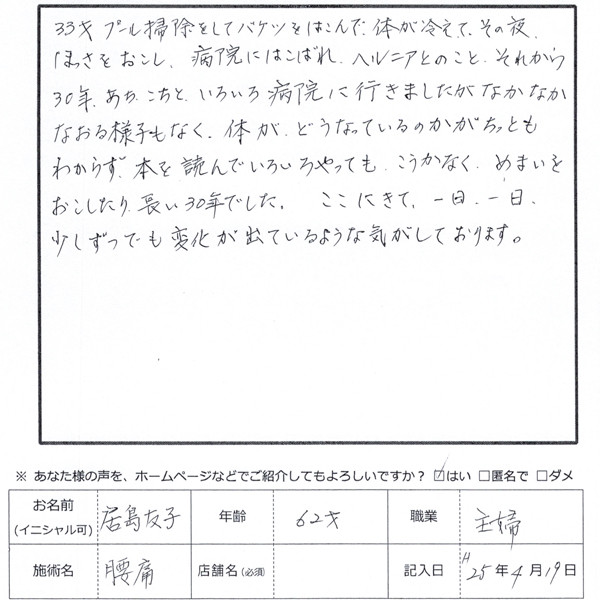 33才 プール掃除をしてバケツをはこんで、体が冷えて、その夜、
ほっさをおこし、病院にはこばれ、ヘルニアとのこと、それから
30年、あち、こちと、いろいろ病院に行きましたがなかなか
なおる様子もなく、体が、どうなっているのかがちっとも
わからず、本を読んでいろいろやっても、こうかなく、めまいを
おこしたり、長い30年でした。 ここにきて、一日、一日、
少しずつでも変化が出ているような気がしております。
※ あなた様の声を、ホームページなどでご紹介してもよろしいですか? ☑はい □匿名で □ダメ
お名前 (イニシャル可) 居島友子 年齢 62才 職業 主婦
施術名 腰痛 店舗名(必須) 記入日 H25年4月19日